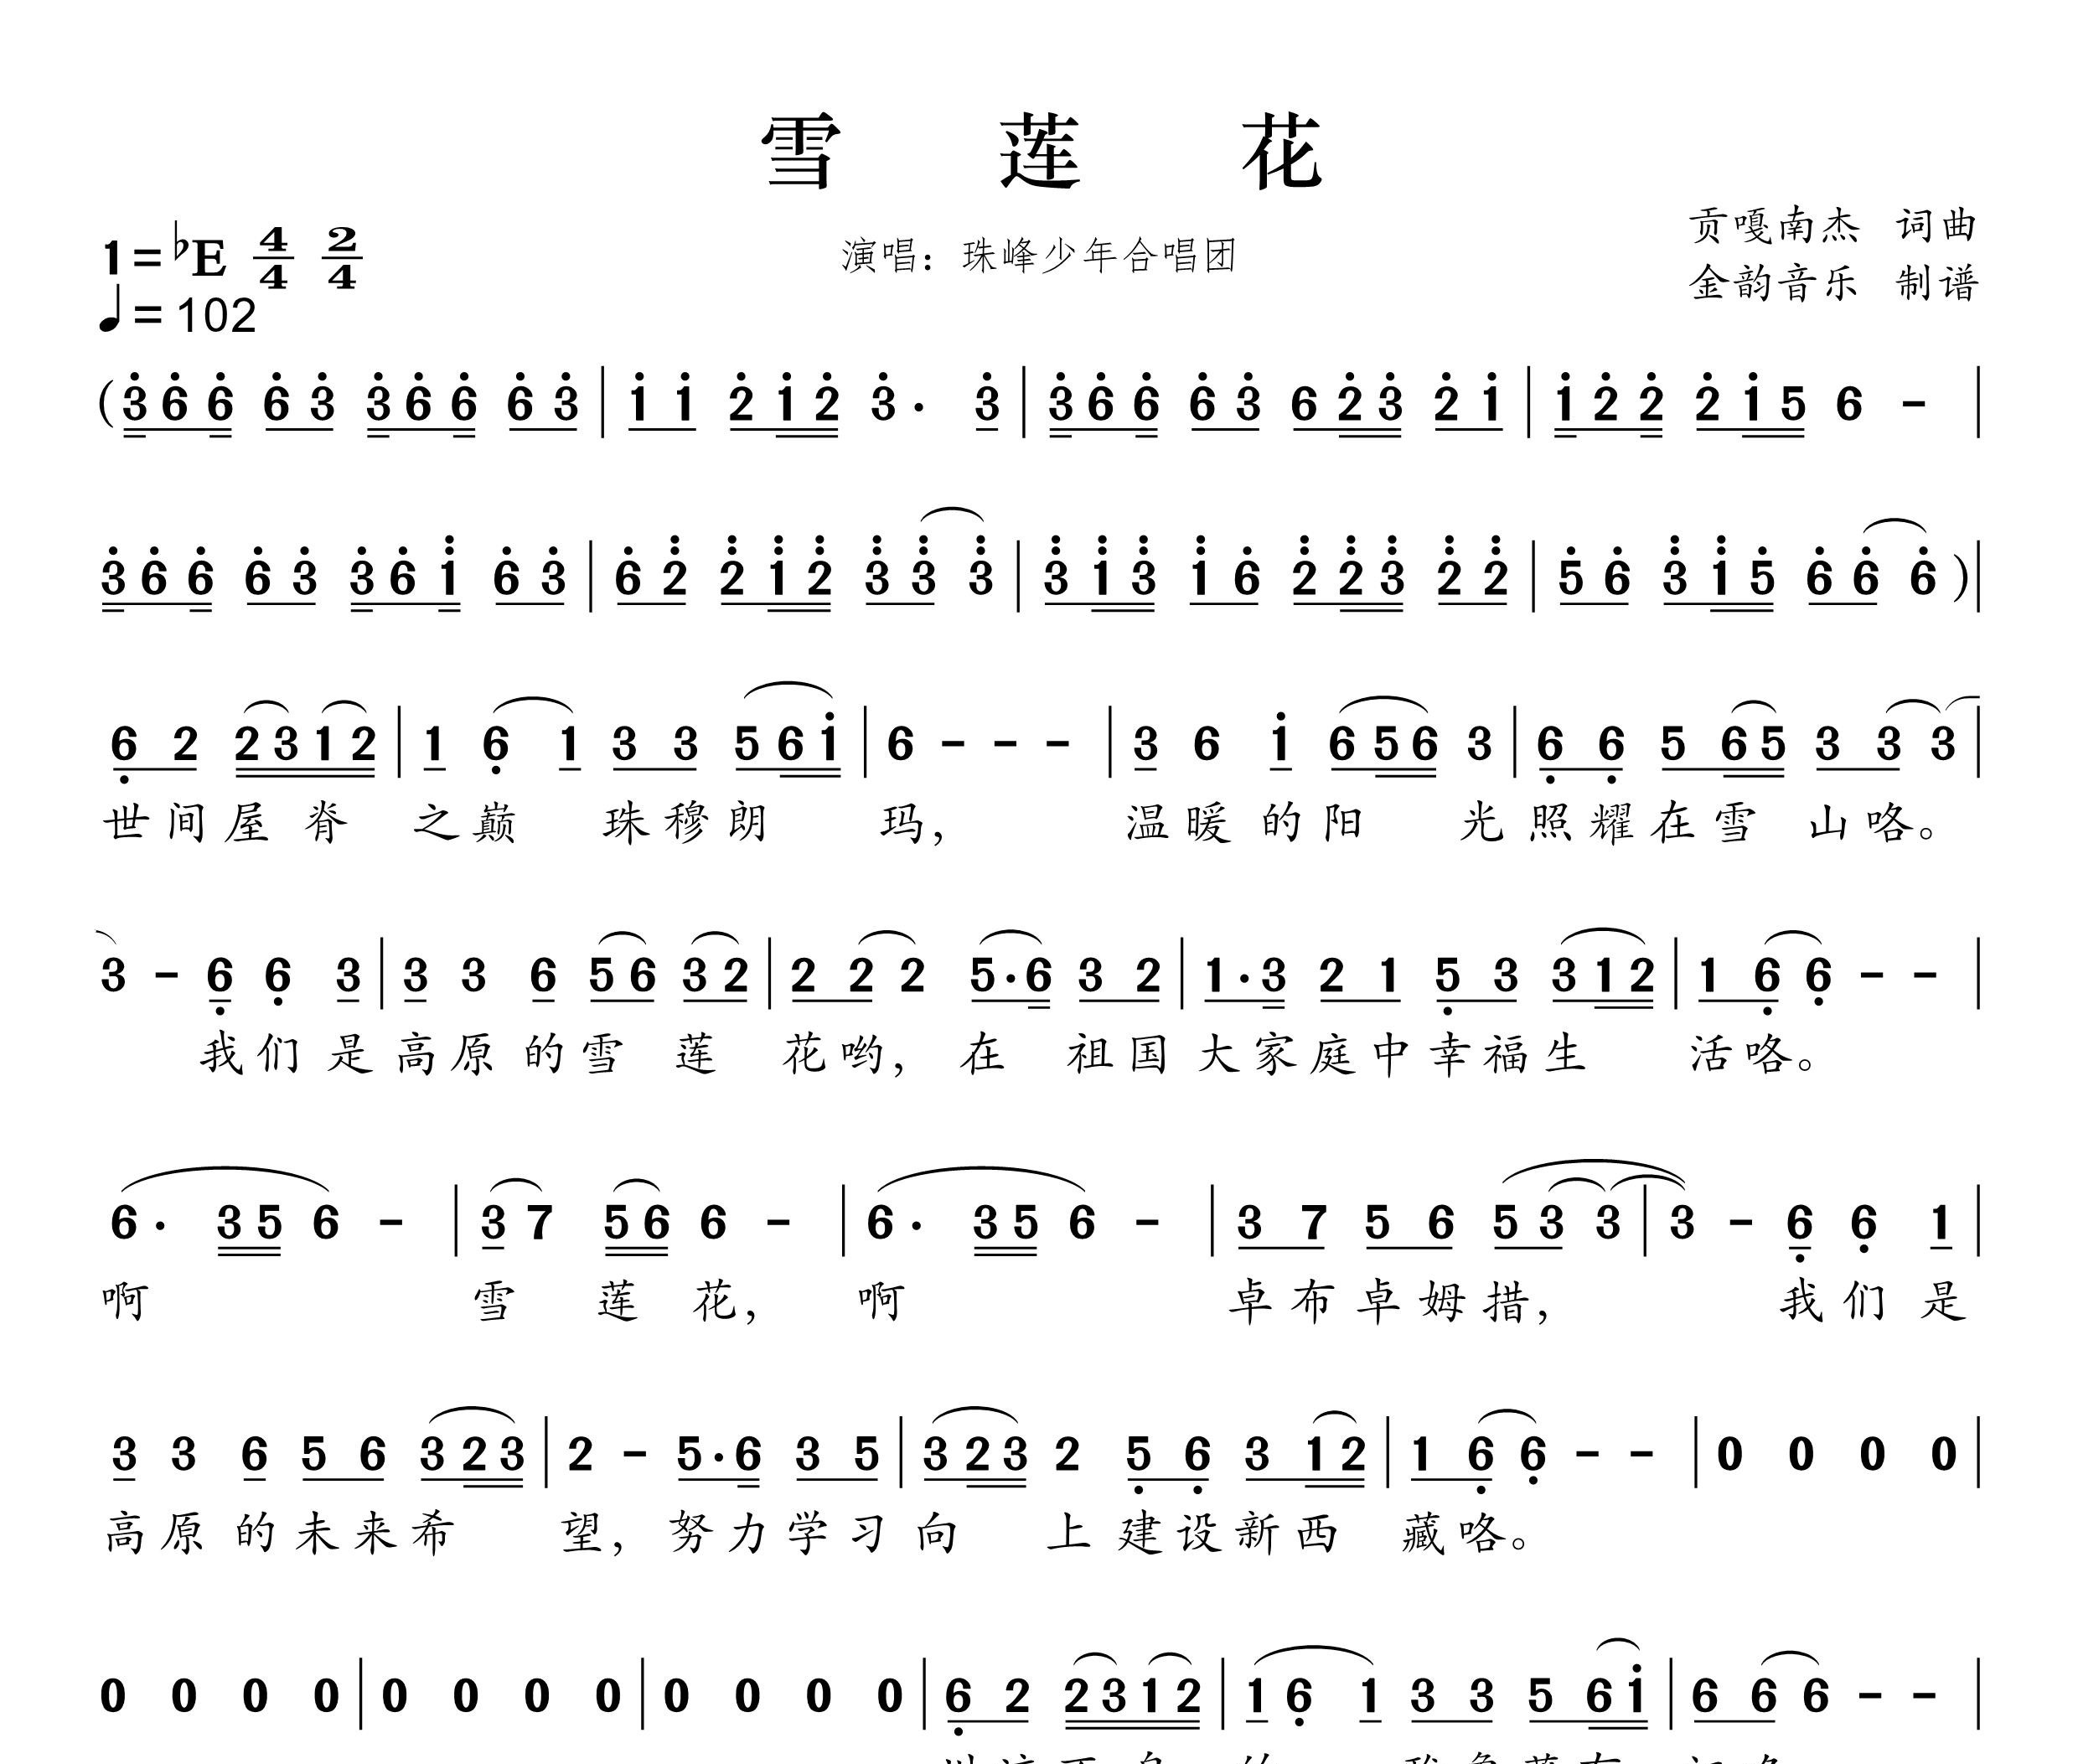 雪 莲 花
1=♭E 4/4 2/4
演唱：珠峰少年合唱团
贡嘎南杰 词曲
金韵音乐 制谱
♩=102
(3̇ 6̇ 6̇ 6̇ 3̇ 3̇ 6̇ 6̇ 6̇ 3̇ | 1̇ 1̇ 2̇ 1̇ 2̇ 3̇· 3̇ | 3̇ 6̇ 6̇ 6̇ 3̇ 6 2̇ 3̇ 2̇ 1̇ | 1̇ 2̇ 2̇ 2̇ 1̇ 5 6 - |
3̇ 6̇ 6̇ 6̇ 3̇ 3̇ 6̇ 1̈ 6̇ 3̇ | 6̇ 2̈ 2̈ 1̈ 2̈ 3̈ 3̈ 3̈ | 3̈ 1̈ 3̈ 1̈ 6̇ 2̈ 2̈ 3̈ 2̈ 2̈ | 5̇ 6̇ 3̈ 1̈ 5̇ 6̇ 6̇ 6̇ )|
6̣ 2 2 3 1 2 | 1 6̣ 1 3 3 5 6 1̇ | 6 - - - | 3 6 1̇ 6 5 6 3 | 6̣ 6̣ 5 6 5 3 3 3 |
世间屋脊 之巅 珠穆朗 玛， 温暖的阳 光照耀在雪 山咯。
3 - 6̣ 6̣ 3 | 3 3 6 5 6 3 2 | 2 2 2 5·6 3 2 | 1·3 2 1 5̣ 3 3 1 2 | 1 6̣ 6̣ - - |
我们是高原的雪 莲 花哟，在 祖国大家庭中幸福生 活咯。
6· 3 5 6 - | 3 7 5 6 6 - | 6· 3 5 6 - | 3 7 5 6 5 3 3 | 3 - 6̣ 6̣ 1 |
啊 雪 莲 花， 啊 卓布卓姆措， 我们是
3 3 6 5 6 3 2 3 | 2 - 5·6 3 5 | 3 2 3 2 5̣ 6̣ 3 1 2 | 1 6̣ 6̣ - - | 0 0 0 0 |
高原的未来希 望，努力学习向 上建设新西 藏咯。
0 0 0 0 | 0 0 0 0 | 0 0 0 0 | 6̣ 2 2 3 1 2 | 1 6̣ 1 3 3 5 6 1̇ | 6 6 6 - - |